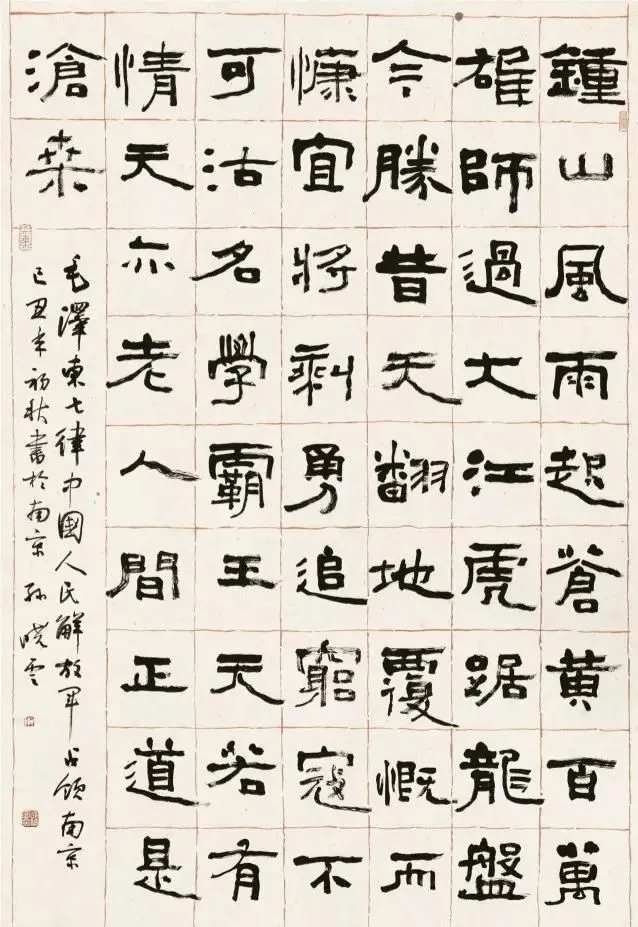 鍾山風雨起蒼黄百萬
雄師過大江虎踞龍盤
今勝昔天翻地覆慨而
慷宜將剩勇追窮寇不
可沽名學霸王天若有
情天亦老人間正道是
滄桒
毛澤東七律中國人民解放軍占領南京
己丑年初秋書於南京 孫曉雲